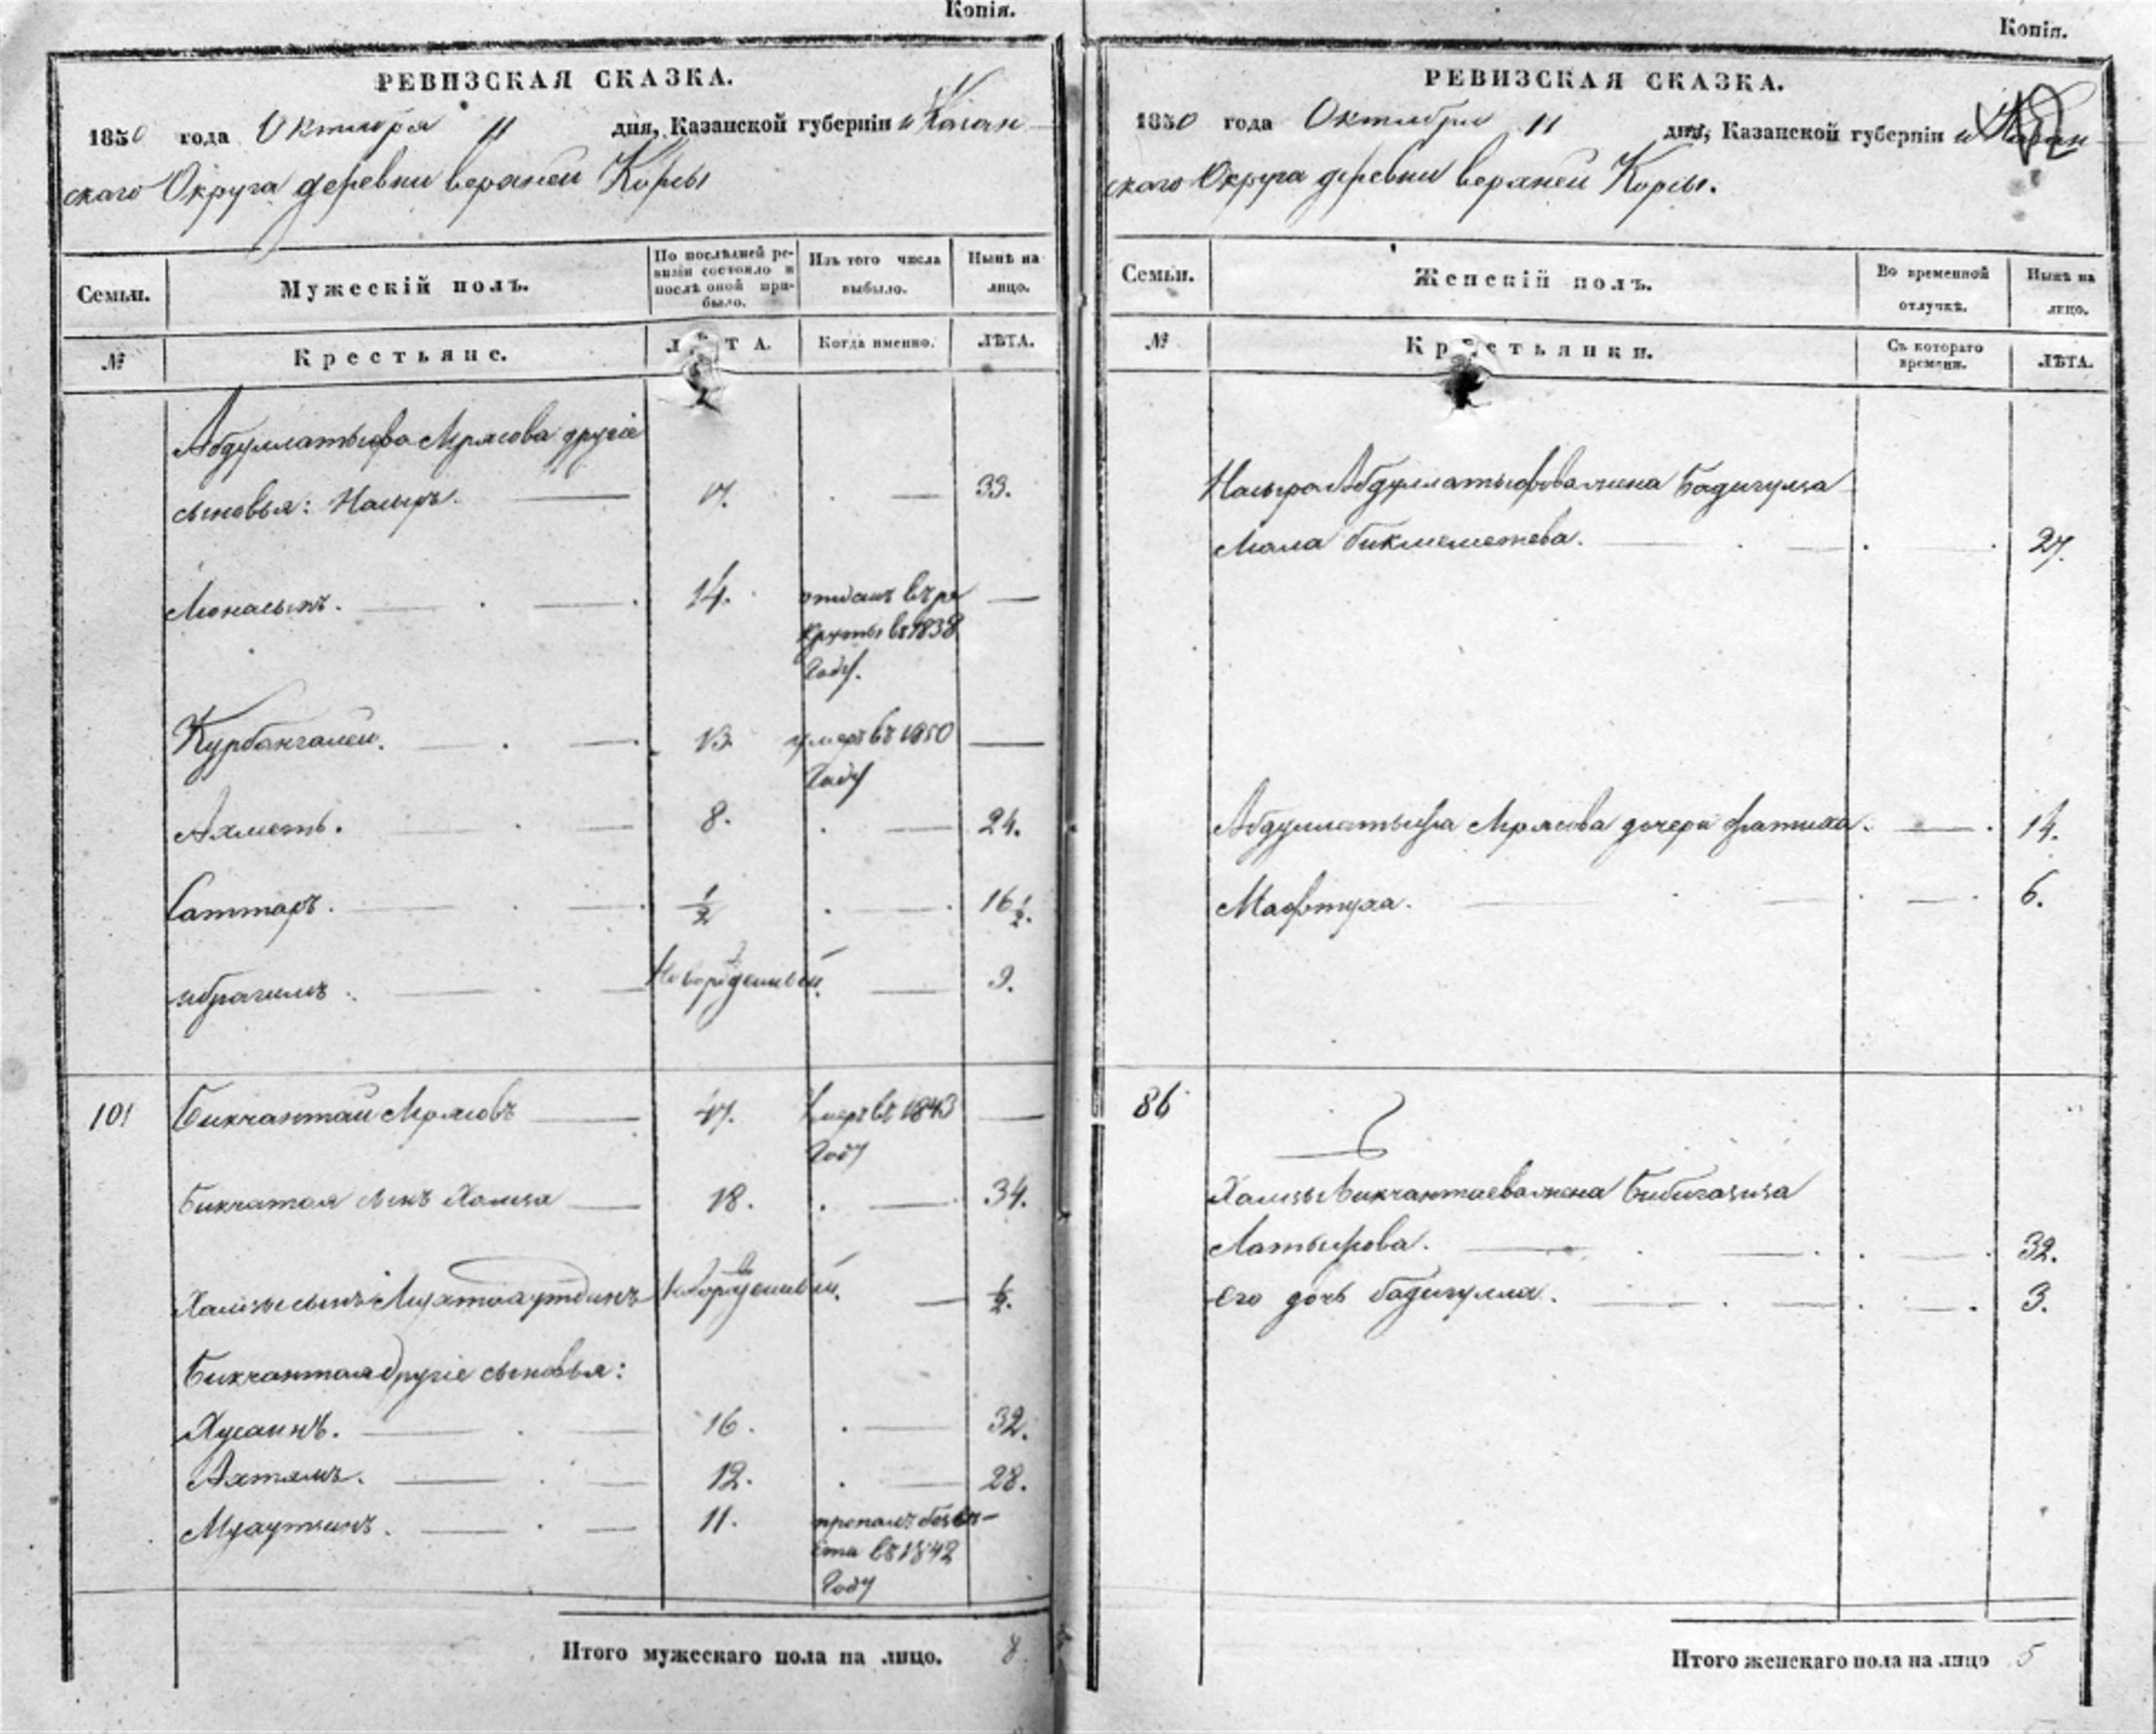 Копія.
РЕВИЗСКАЯ СКАЗКА.
1850 года Октября 11 дня, Казанской губерніи и Казан
скаго Округа деревни верхней Корсы
Семьи.
Мужескій полъ.
По послѣдней ре-
визіи состояло и
послѣ оной при-
было.
Изъ того числа
выбыло.
Нынѣ на
лицо.
№
Крестьяне.
ЛѢТА.
Когда именно.
ЛѢТА.
Абдуллатыфа Мрясова другіе
сыновья: Насыръ. 17. 33.
14. отданъ въ ре
круты въ 1838
году.
Курбангалей. 13 умеръ въ 1850
году
Ахметъ. 8. 24.
Саттаръ. 1/2 16 1/2.
ибрагимъ. Новорожденный. 9.
101 Бикчантай Мрясовъ 47. Умеръ въ 1843
году
Бикчатая сынъ Хамза 18. 34.
Хамзы сынъ Новорожденный. 1/2.
Бикчантая другіе сыновья:
Хусаинъ. 16. 32.
Ахтямъ. 12. 28.
11. пропалъ безвѣ-
ста въ 1842
году
Итого мужескаго пола на лицо. 8.
Копія.
РЕВИЗСКАЯ СКАЗКА.
1850 года Октября 11 дня, Казанской губерніи и Казан
скаго Округа деревни верхней Корсы.
Семьи.
Женскій полъ.
Во временной
отлучкѣ.
Нынѣ на
лицо.
№
Крестьянки.
Съ котораго
времени.
ЛѢТА.
Насыра Абдуллатыфова жена
бикмеметева. 27.
Абдуллатыфа Мрясова дочери Фатиха. 14.
Мафтуха. 6.
86
Хамзы Бикчантаева жена Бибигазиза
Латыфова. 32.
его дочь бадигулла. 3.
Итого женскаго пола на лицо 5